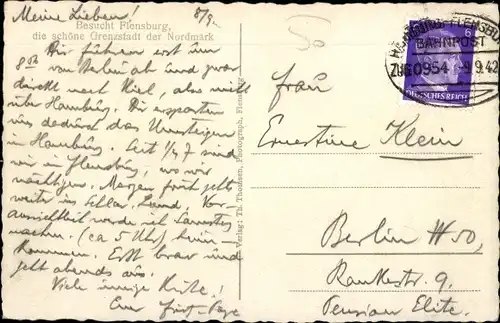 Meine Lieben! 8/9.
Besucht Flensburg,
die schöne Grenzstadt der Nordmark
Wir fuhren erst um
8 von Berlin ab und zwar
direkt nach Kiel, also nicht
über Hamburg. Wir ersparten
uns dadurch das Umsteigen
in Hamburg. Seit 1/4 7 sind
wir in Flensburg, wo wir
nächtigen. Morgen früh geht
weiter
nachm. (ca 5 Uhr) heim-
kommen. Erst brav und
geht abends aus.
Viele innige Küsse!
Euer
Verlag: Th. Thomsen, Photograph, Flensburg
HAMBURG-FLENSBURG
BAHNPOST
ZUG 0954 -9.9.42
6
DEUTSCHES REICH
Frau
Ernestine Klein
Berlin W 50,
Rankestr. 9.
Pension Elite.